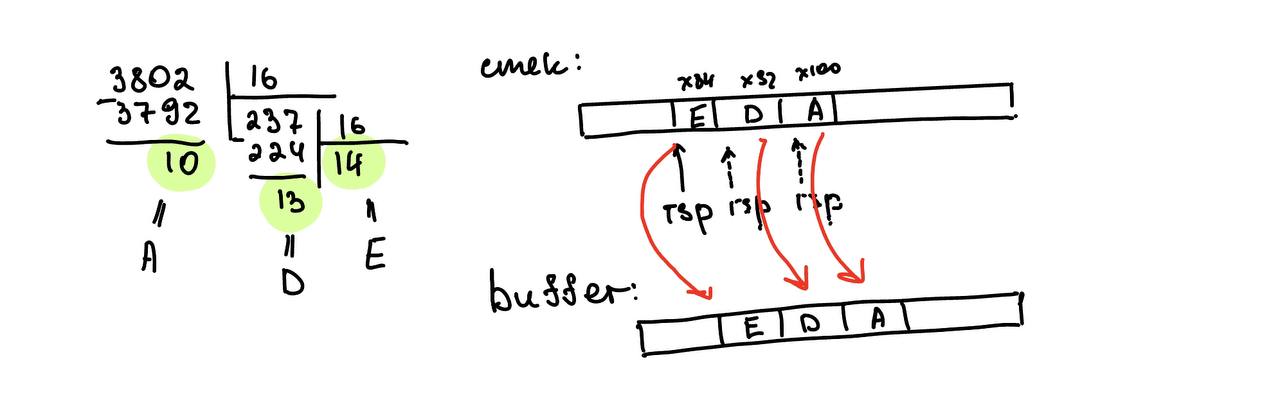 3802 16
-3792 237 16
10 224 14
13
A D E
стек:
x84 x92 x100
E D A
rsp rsp rsp
buffer:
E D A